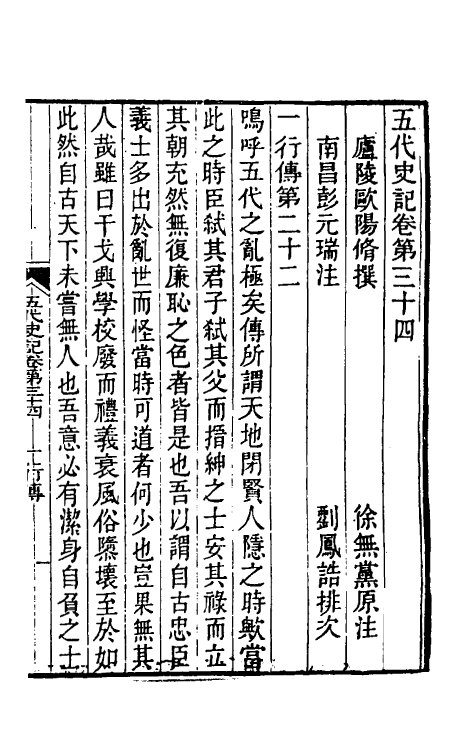 五代史記卷第三十四
廬陵歐陽脩撰　徐無黨原注
南昌彭元瑞注　劉鳳誥排次
一行傳第二十二
嗚呼五代之亂極矣傳所謂天地閉賢人隱之時歟當
此之時臣弑其君子弑其父而搢紳之士安其祿而立
其朝充然無復廉恥之色者皆是也吾以謂自古忠臣
義士多出於亂世而怪當時可道者何少也豈果無其
人哉雖曰干戈興學校廢而禮義衰風俗隳壞至於如
此然自古天下未嘗無人也吾意必有潔身自負之士
五代史記卷第三十四　一行傳　一